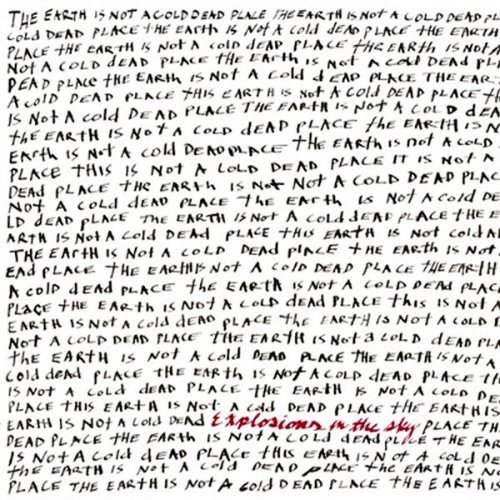 THE EARTH IS NOT A COLD DEAD PLACE THE EARTH IS NOT A COLD DEAD PL
COLD DEAD PLACE THE EARTH IS NOT A COLD DEAD PLACE THE EARTH
PLACE THE EARTH IS NOT A COLD DEAD PLACE THE EARTH IS NOT
NOT A COLD DEAD PLACE THE EARTH IS NOT A COLD DEAD PL
DEAD PLACE THE EARTH IS NOT A COLD DEAD PLACE THE EAR
A COLD DEAD PLACE THIS EARTH IS NOT A COLD DEAD PLACE
IS NOT A COLD DEAD PLACE THE EARTH IS NOT A COLD DEA
THE EARTH IS NOT A COLD DEAD PLACE THE EARTH IS NOT A
EARTH IS NOT A COLD DEAD PLACE THE EARTH IS NOT A COLD
PLACE THIS IS NOT A COLD DEAD PLACE IT IS NOT A
DEAD PLACE THE EARTH IS NOT NOT A COLD DEAD PLAC
NOT A COLD DEAD PLACE THE EARTH IS NOT A COLD DE
LD DEAD PLACE THE EARTH IS NOT A COLD DEAD PLACE THE E
ARTH IS NOT A COLD DEAD PLACE THIS EARTH IS NOT COLD A
THE EARTH IS NOT A COLD DEAD PLACE THE EARTH IS NOT
EAD PLACE THE EARTH IS NOT A COLD DEAD PLACE THE EARTH
A COLD DEAD PLACE THE EARTH IS NOT A COLD DEAD PLAC
PLACE THE EARTH IS NOT A COLD DEAD PLACE THIS IS NOT A
EARTH IS NOT A COLD DEAD PLACE THE EARTH IS NOT A COLD
NOT A COLD DEAD PLACE THE EARTH IS NOT A COLD DEAD PL
THE EARTH IS NOT A COLD DEAD PLACE THE EARTH IS NOT A
COLD DEAD PLACE THE EARTH IS NOT A COLD DEAD PLACE TH
IS NOT A COLD DEAD PLACE THE EARTH IS NOT A COLD DE
PLACE THIS EARTH IS NOT A COLD DEAD PLACE THE EARTH IS
EARTH IS NOT A COLD DEAD Explosions in the sky PLACE TH
DEAD PLACE THE EARTH IS NOT A COLD DEAD PLACE THE EAR
IS NOT A COLD DEAD PLACE THIS EARTH IS NOT A COLD DEA
THE EARTH IS NOT A COLD DEAD PLACE THE EARTH IS N
PLACE THE EARTH IS NOT A COLD DEAD PLACE THE EARTH IS